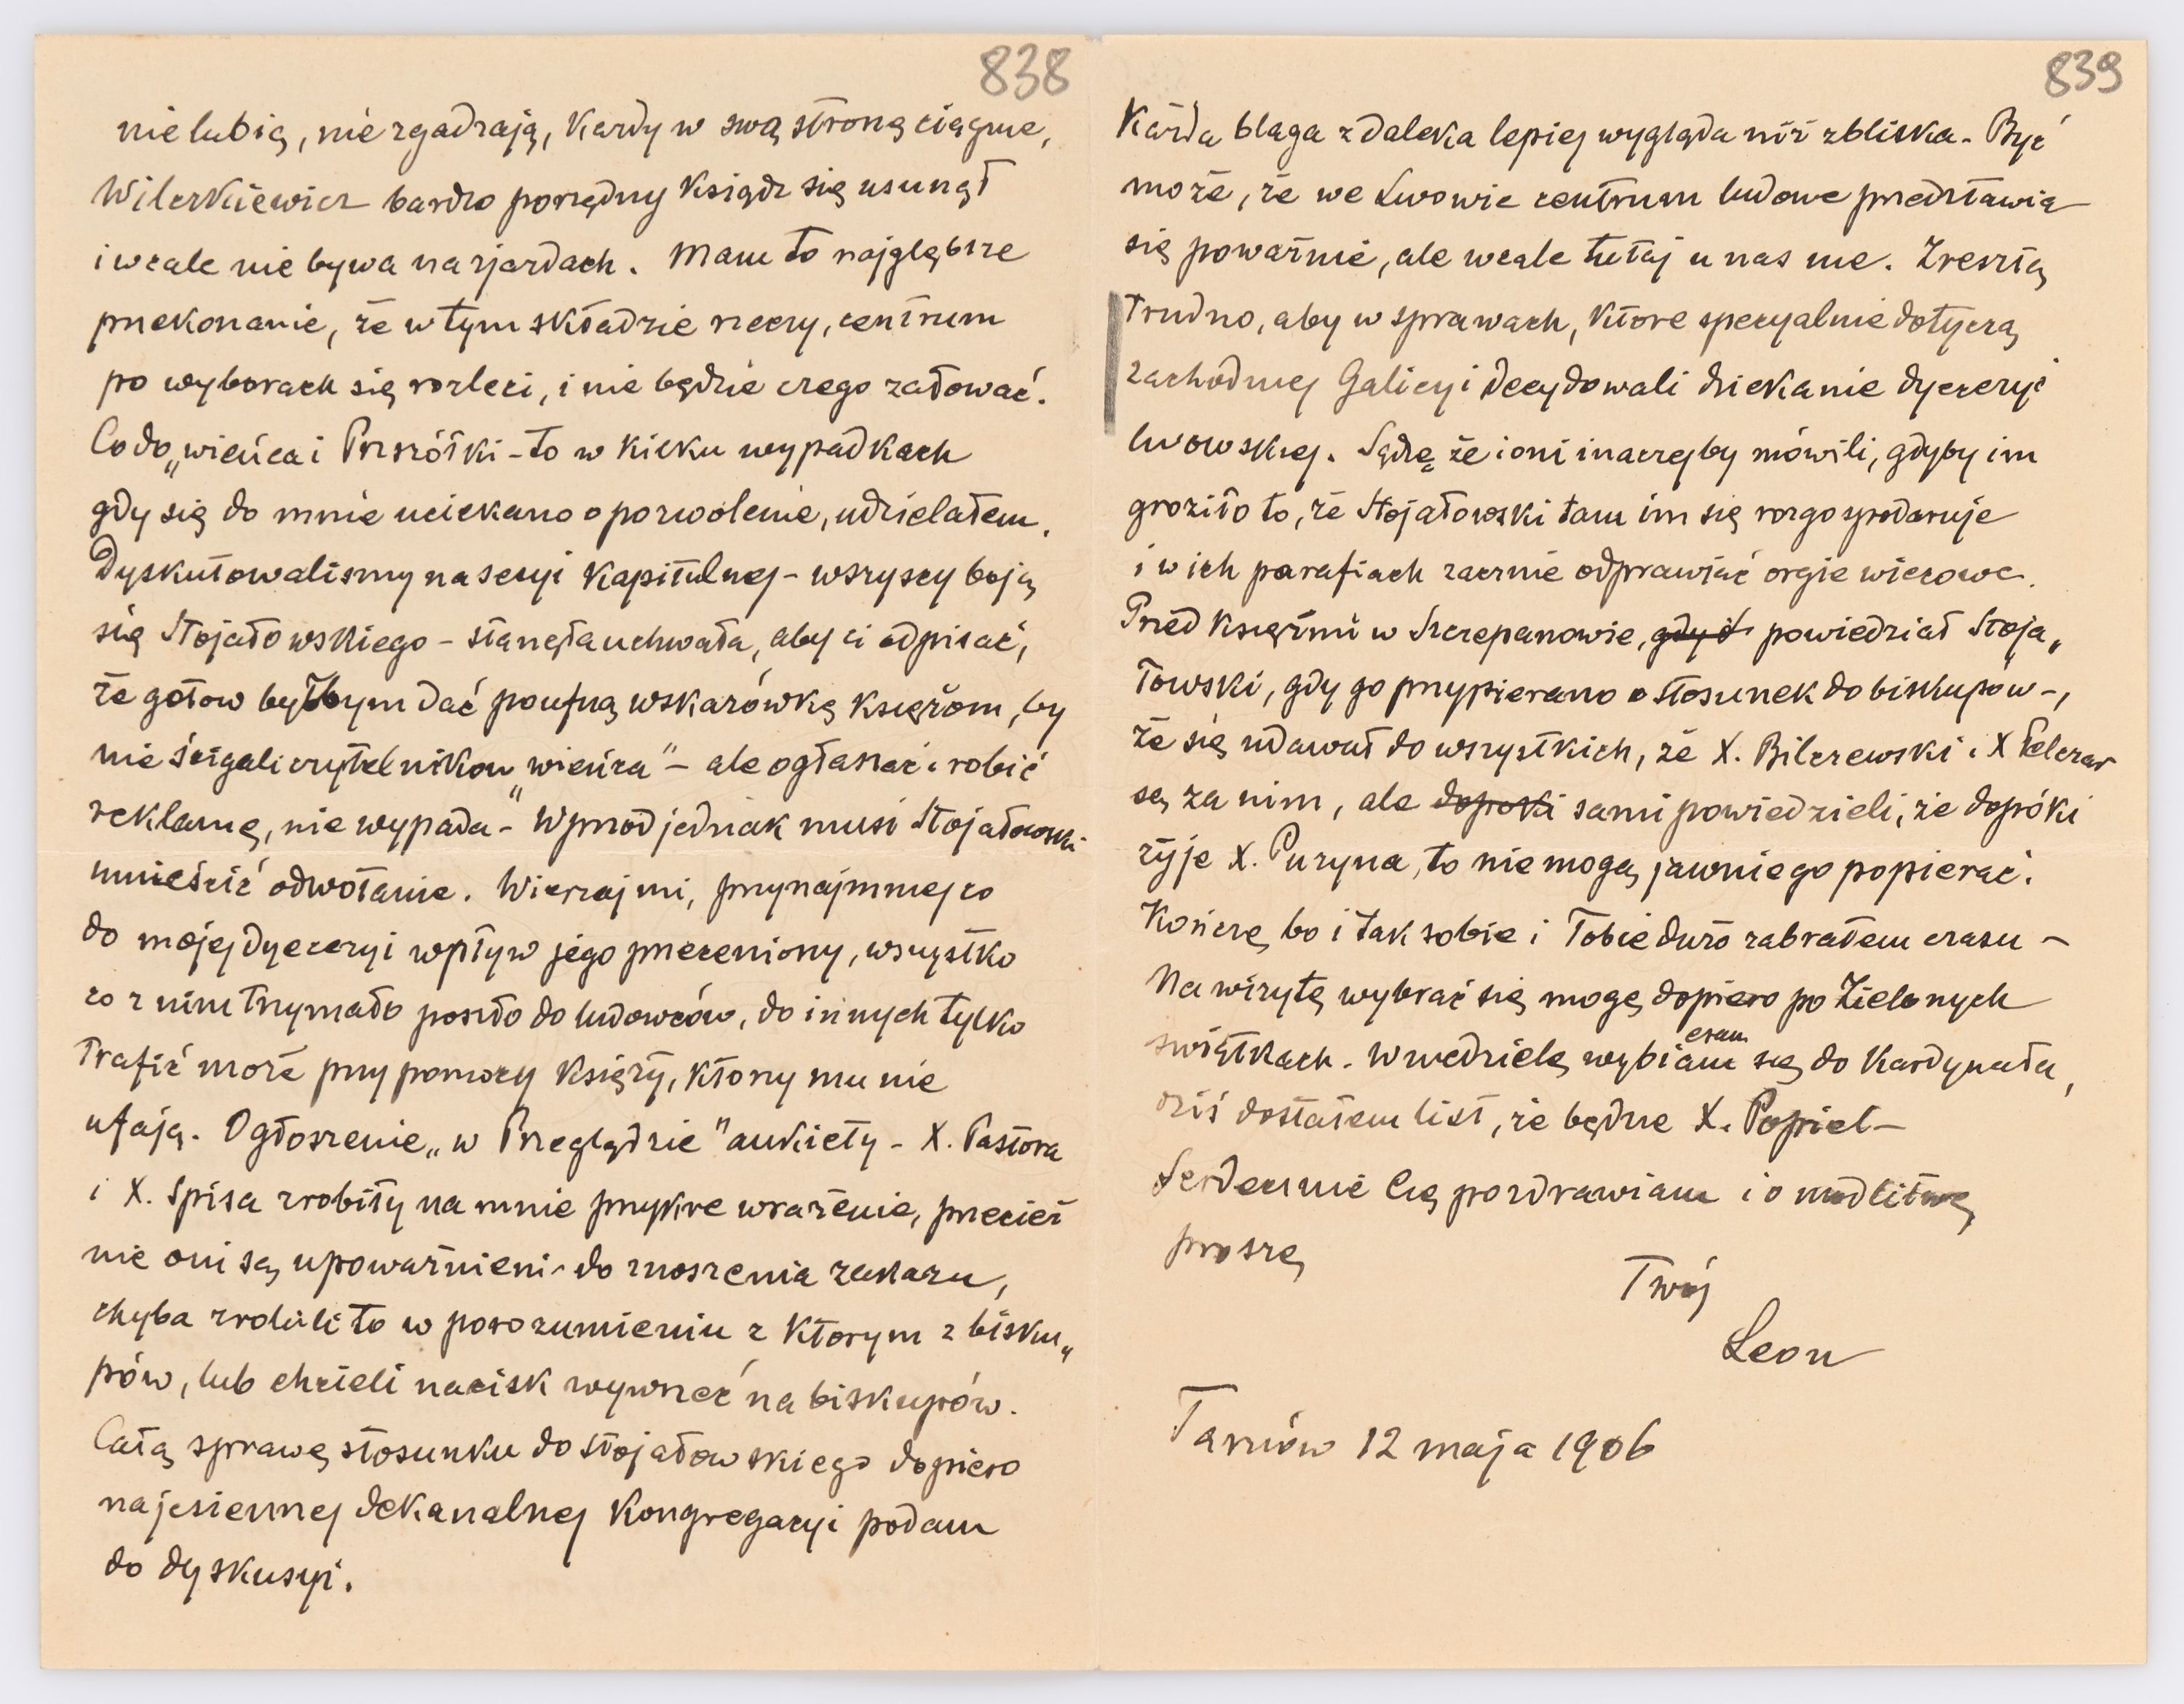 838
nie lubią, nie zgadzają, każdy w swą stronę ciągnie,
Wilczkiewicz bardzo porządny ksiądz się usunął
i wcale nie bywa na zjazdach. Mam to najgłębsze
przekonanie, że w tym składzie rzeczy, centrum
po wyborach się rozleci, i nie będzie czego żałować.
Co do „wieńca i Pszczółki - to w kilku wypadkach
gdy się do mnie uciekano o pozwolenie, udzielałem.
Dyskutowaliśmy na sesyi Kapitulnej - wszyscy boją
się Stojałowskiego - stanęła uchwała, aby ci odpisać,
że gotów byłbym dać poufną wskazówkę księżom, by
nie ścigali czytelników „wieńca" - ale ogłaszać i robić
reklamę, nie wypada - Wprzód jednak musi Stojałowski
umieścić odwołanie. Wierzaj mi, przynajmniej co
do mojej dyecezyi wpływ jego przeceniony, wszystko
co z nim trzymało poszło do ludowców, do innych tylko
trafić może przy pomocy księży, którzy mu nie
ufają. Ogłoszenie „w Przeglądzie" ankiety - X. Pastora
i X. Spisa zrobiły na mnie przykre wrażenie, przecież
nie oni są upoważnieni do znoszenia zakazu,
chyba zrobili to w porozumieniu z którym z bisku„
pów, lub chcieli nacisk wywrzeć na biskupów.
Całą sprawę stosunku do Stojałowskiego dopiero
na jesiennej dekanalnej Kongregacyi podam
do dyskusyi.
839
Każda blaga zdaleka lepiej wygląda niż zbliska. Być
może, że we Lwowie centrum ludowe przedstawia
się poważnie, ale wcale tutaj u nas nie. Zresztą
trudno, aby w sprawach, które specyalnie dotyczą
zachodniej Galicyi decydowali dziekanie dyecezyi
lwowskiej. Sądzę że i oni inaczej by mówili, gdyby im
groziło to, że Stojałowski tam im się rozgospodaruje
i w ich parafiach zacznie odprawiać orgie wiecowe.
Przed księżmi w Szczepanowie, gdy i powiedział Stoja„
łowski, gdy go przypierano o stosunek do biskupów -,
że się udawał do wszystkich, że X. Bilczewski i X Pelczar
są za nim, ale dopoki sami powiedzieli, że dopóki
żyje X. Puzyna, to nie mogą jawnie go popierać.
Kończę bo i tak sobie i Tobie dużo zabrałem czasu -
Na wizytę wybrać się mogę dopiero po Zielonych
świątkach. W niedzielę wybieram się do Kardynała,
dziś dostałem list, że będzie X. Popiel -
Serdecznie Cię pozdrawiam i o modlitwę
proszę
Twój
Leon
Tarnów 12 maja 1906